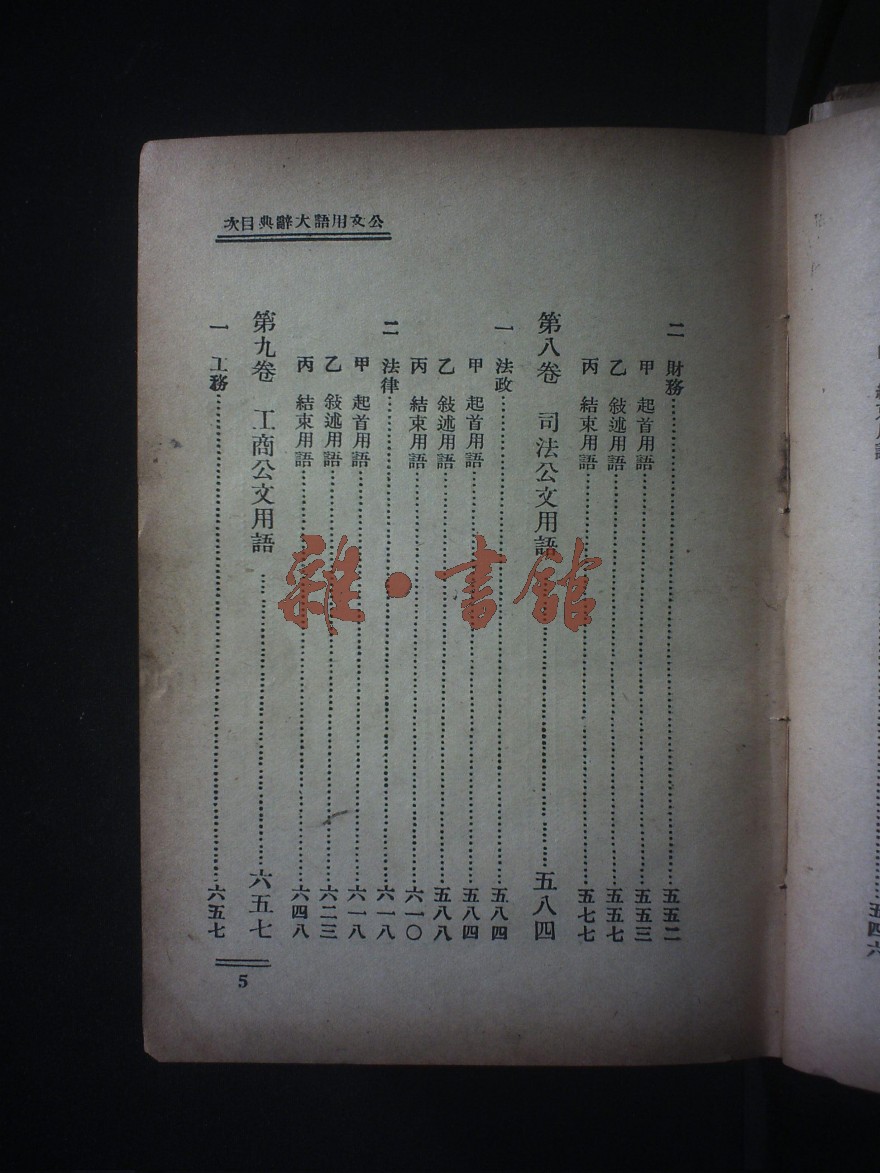 公文用語大辭典目次
二 財務……五五二
甲 起首用語……五五三
乙 敍述用語……五五七
丙 結束用語……五七七
第八卷 司法公文用語……五八四
一 法政……五八四
甲 起首用語……五八四
乙 敍述用語……五八八
丙 結束用語……六一〇
二 法律……六一八
甲 起首用語……六一八
乙 敍述用語……六二三
丙 結束用語……六四八
第九卷 工商公文用語……六五七
一 工務……六五七
5
雜·書館
五四六